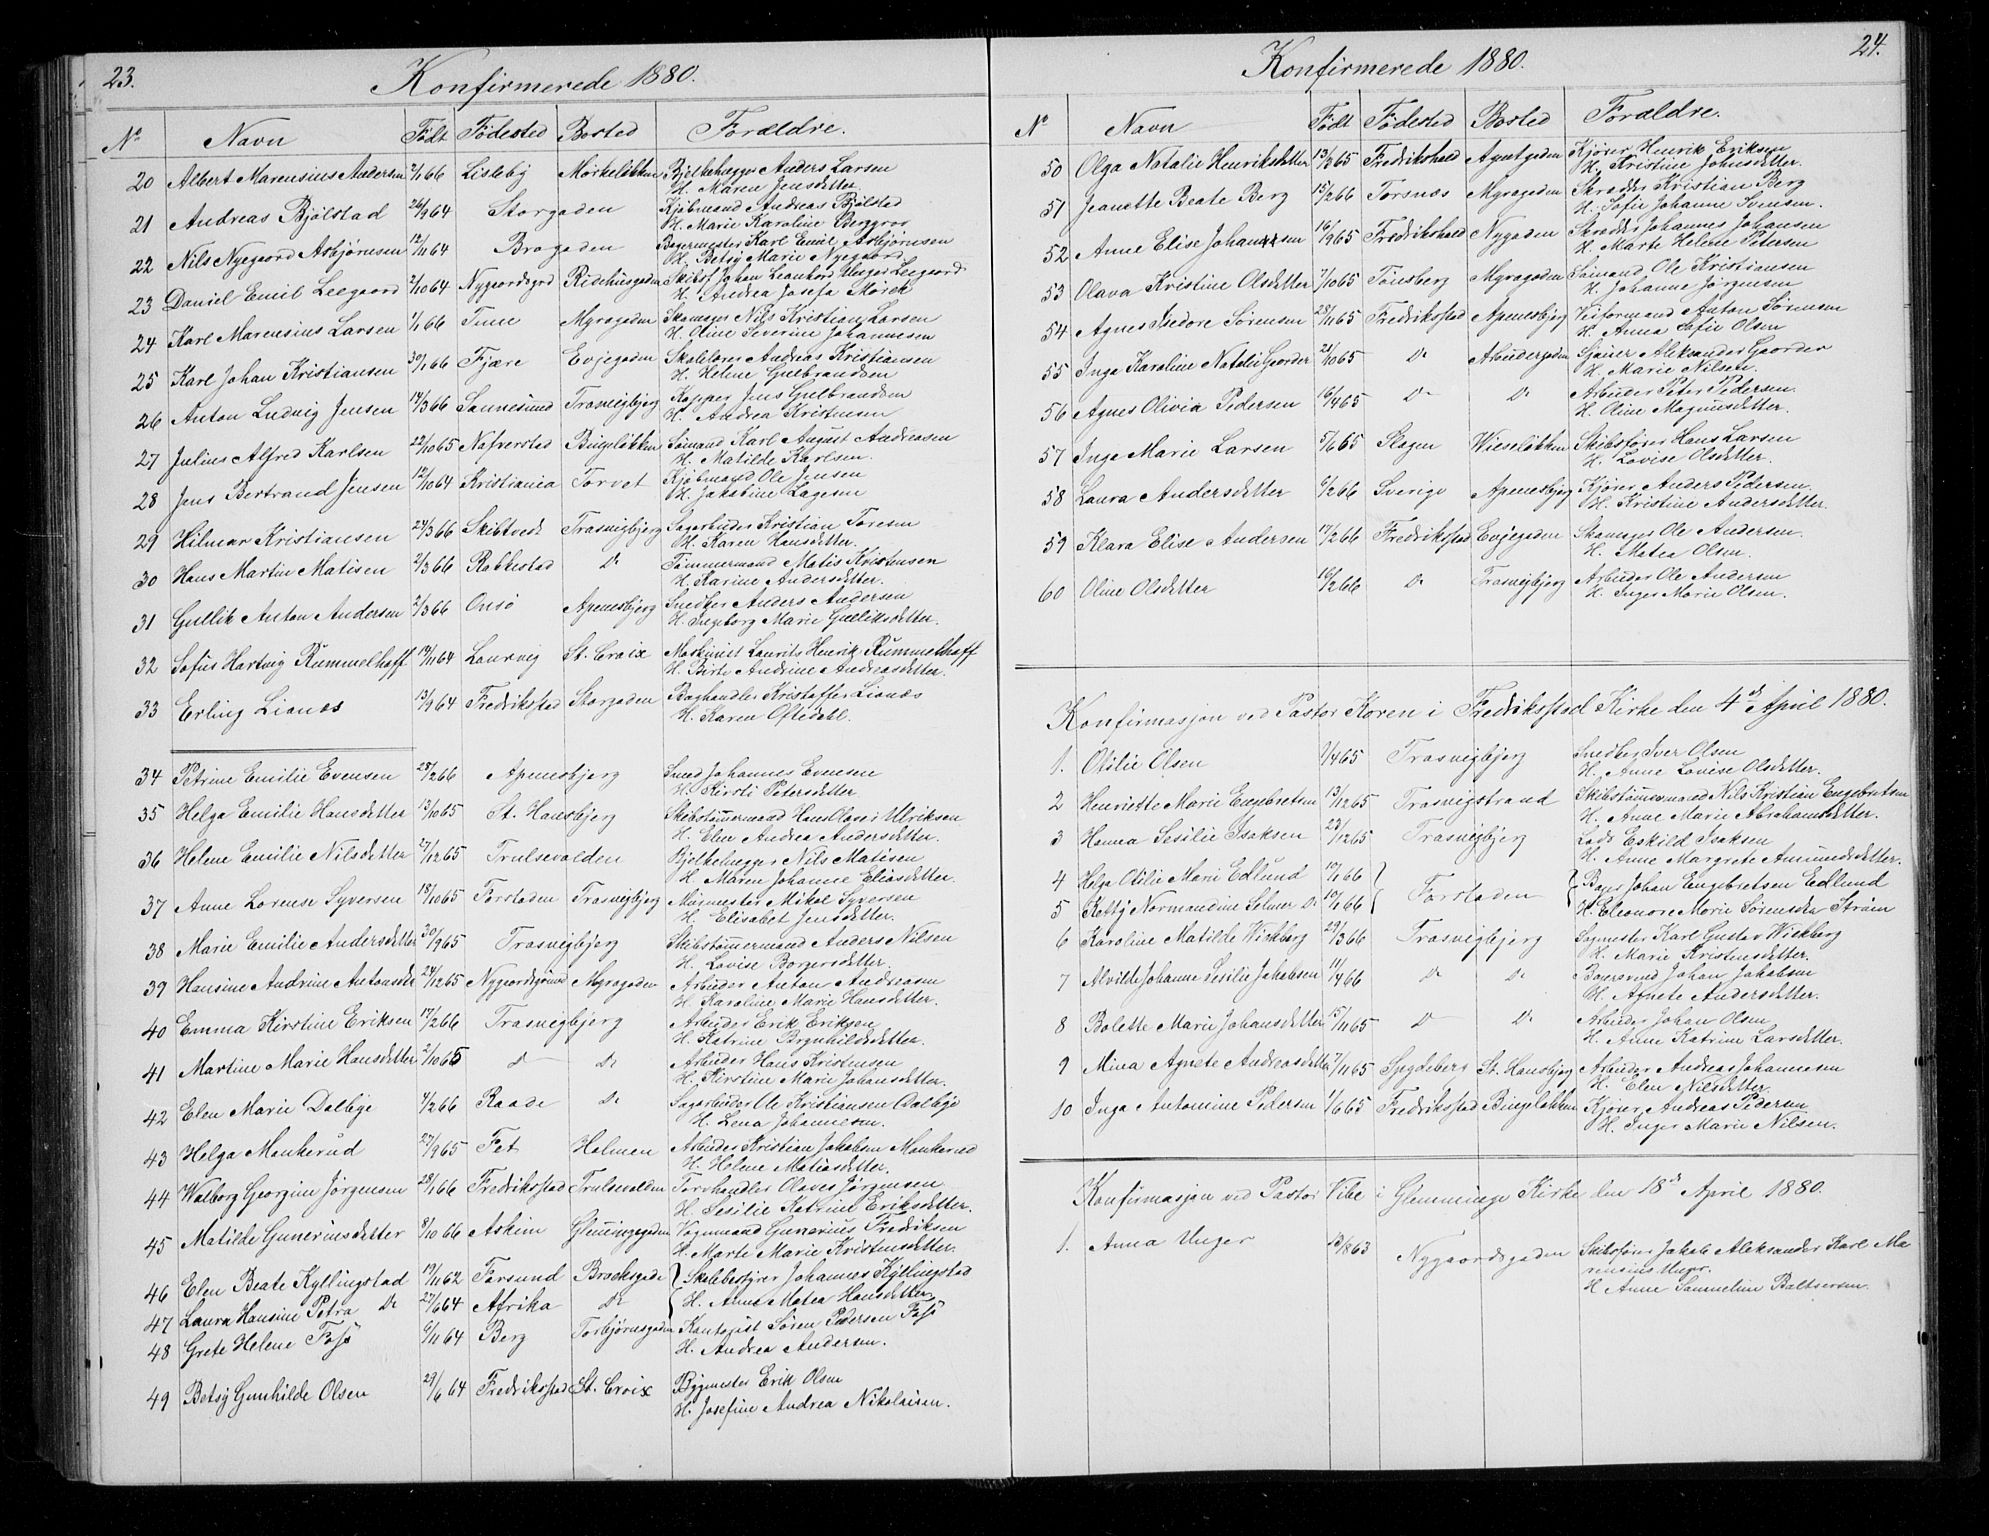 23.
Konfirmerede 1880.
No Navn Födt Födested Bosted Forældre.
20 Albert Marensius Andersen 2/1 66 Lisleby Mörkelökken Bjelkehugger Anders Larsen
H. Maren Jensdetter
21 Andreas Bjölstad 26/9 64 Storgaden Kjöbmand Andreas Bjölstad
H. Marie Karoline Berggros
22 Nils Nyegaard Asbjörnsen 12/11 64 Brogaden Bagermester Karl Emil Asbjörnsen
H. Betsy Marie Nyegaard
23 Daniel Emil Leegaard 2/10 64 Nygaardsgd Ridehusgaden Skibsf. Johan Leonhard Unger Leegaard
H. Andrea Josefa Mörck
24 Karl Marensius Larsen 1/1 66 Tune Myragaden Skomager Nils Kristian Larsen
H. Oline Severine Johannesen
25 Karl Johan Kristiansen 30/1 66 Fjære Evjegaden Skolelærer Andreas Kristiansen
H. Helene Gulbrandsen
26 Anton Ludvig Jensen 14/3 66 Sannesund Trasvigbjerg Kopper Jens Gulbrandsen
H. Andrea Kristensen
27 Julius Alfred Karlsen 22/10 65 Nafverstad Bingelökken Sömand Karl August Andreasen
H. Matilde Karlsen.
28 Jens Bertrand Jensen 12/10 64 Kristiania Torvet Kjöbmand Ole Jensen
H. Jakobine Lagesen
29 Hilmar Kristiansen 24/3 66 Skibtvedt Trasvigbjerg Sagarbeider Kristian Toresen
H. Karen Hansdetter.
30 Hans Martin Matisen 2/3 66 Rakkestad Do Tömmermand Matis Kristensen
H. Karine Andersdetter.
31 Gullik Anton Andersen 2/3 66 Onsö Apenesbjerg Snedker Anders Andersen
H. Ingeborg Marie Gulliksdetter.
32 Sofus Hartvig Rummelhoff 19/11 64 Laurvig St. Croix Maskinist Laurits Henrik Rummelhoff
H. Birte Andrine Andreasdetter.
33 Erling Lionæs 13/9 64 Fredriksstad Storgaden Boghandler Kristoffer Lionæs
H. Karen Oftedahl.
34 Petrine Emilie Evensen 25/2 66 Apenesbjerg Smed Johannes Evensen
H. Kirsti Petersdetter
35 Helga Emilie Hansdetter 13/10 65 St. Hansbjerg Skibstömmermand Hans Olavi Ulriksen
H. Elen Andrea Andersdetter.
36 Helene Emilie Nilsdetter 27/12 65 Trulsevolden Bjelkehugger Nils Matisen
H. Maren Johanne Eliasdetter.
37 Anne Lorense Syversen 18/10 65 Forstaden Trasvigbjerg Murmester Mikal Syversen
H. Elisabet Jensdetter.
38 Marie Emilie Andersdetter 30/9 65 Trasvigbjerg Skibstömmermand Anders Nilsen
H. Lovise Borgersdetter.
39 Hansine Andrine Antonsdtr 24/12 65 Nygaardsgrund Myragaden Arbeider Anton Andreasen
H. Karoline Marie Hansdetter.
40 Emma Kirstine Eriksen 17/2 66 Trasvigbjerg Arbeider Erik Eriksen
H. Katrine Brynhildsdetter.
41 Martine Marie Hansdetter 2/10 65 Do Do Arbeider Hans Kristensen
H. Kirstine Marie Johansdetter.
42 Elen Marie Dalbye 4/2 66 Raade Do Sagarbeider Ole Kristiansen Dalbye
H. Lena Johannesen.
43 Helga Monkerud 27/9 65 Fet Holmen Arbeider Kristian Jakobsen Monkerud
H. Helene Matiasdetter.
44 Walborg Georgine Jörgensen 28/1 66 Fredriksstad Trulsevolden Torvhandler Olaves Jörgensen
H. Sesilie Katrine Eriksdetter.
45 Matilde Guneriusdetter 8/10 66 Askim Glemmingegaden Vognmand Gunerius Fredriksen
H. Marte Marie Kristensdetter.
46 Elen Beate Kyllingstad 19/11 62 Farsund Brocksgade } Skolebestyrer Johannes Kyllingstad
47 Laura Hansine Petra Do 27/6 64 Afrika Do { H. Anne Matea Hansdetter
48 Grete Helene Fosö 6/11 64 Berg Torbjørnsgaden Kontorist Sören Pedersen Fosö
H. Andrea Andersen.
49 Betsy Gunhilde Olsen 29/6 64 Fredriksstad St. Croix Bygmester Erik Olsen
H. Josefine Andrea Nikolaisen.
24.
Konfirmerede 1880.
No Navn Födt Födested Bosted Forældre.
50 Olga Natalie Henriksdetter 13/3 65 Fredrikshald Agentgaden Kjörer Henrik Eriksen
H. Kristine Johnsdetter.
51 Jeanette Beate Berg 15/2 66 Torsnæs Myragaden Skrædder Kristian Berg
H. Sofie Johanne Svensen.
52 Anne Elise Johansen 16/9 65 Fredrikshald Nygaden Skrædder Johannes Johansen
H. Marte Helene Petersen
53 Olava Kristine Olsdetter 7/10 65 Tönsberg Myragaden Sömand Ole Kristiansen
H. Johanne Jörgensen
54 Agnes Isedore Sörensen 28/11 65 Fredriksstad Apenesbjerg Veiformand Anton Sörensen
H. Anna Sofie Olsen
55 Inga Karoline Natalie Gaarder 21/10 65 Do Arbeidergaden Sjauer Aleksander Gaarder
H. Marie Nilsen.
56 Agnes Olivia Pedersen 16/4 65 Do Do Arbeider Peter Pedersen.
H. Oline Magnusdetter.
57 Inga Marie Larsen 5/6 65 Slagen Wieselökken Skibsförer Hans Larsen
H. Lovise Olsdetter.
58 Laura Andersdetter 6/2 66 Sverige Apenesbjerg Kjörer Anders Pedersen.
H. Kristine Andersdetter.
59 Klara Elise Andersen 17/2 66 Fredriksstad Evjegaden Skomager Ole Andersen.
H. Matea Olsen.
60 Oline Olsdetter 16/2 66 Do Trasvigbjerg Arbeider Ole Andersen
H. Inger Marie Olsen.
Konfirmasjon ved Pastor Koren i Fredriksstad Kirke den 4de April 1880.
1. Otilie Olsen 1/4 65 Trasvigbjerg Snedker Iver Olsen
H. Anne Lovise Olsdetter.
2 Henriette Marie Engebretsen 13/12 65 Trasvigstrand Skibstömmermand Nils Kristian Engebretsen
H. Anne Marie Abrahamsdetter.
3 Hanna Sesilie Isaksen 23/12 65 Trasvigbjerg Lods Eskild Isaksen
H. Anne Margrete Amundsdetter.
4 Helga Otilie Marie Edlund 10/1 66 } Forstaden } Bager Johan Engebretsen Edlund
5 Ketty Normandine Selmer Do 10/1 66 { H. Eleonore Marie Sörensdtr Ström
6 Karoline Matilde Wickberg 29/3 66 Trasvigbjerg Sagmester Karl Gustav Wickberg
H. Marie Kristensdetter.
7 Alvilde Johanne Sesilie Jakobsen 11/4 66 Do Do Baarsmed Johan Jakobsen
H. Agnete Andersdetter.
8 Bolette Marie Johansdetter 15/11 65 Do Do Arbeider Johan Olsen
H. Anne Katrine Larsdetter.
9 Mina Agnete Andreasdetter 7/11 65 Spydeberg St. Hansbjerg Arbeider Andreas Johannesen
H. Elen Nilsdetter.
10 Inga Antomine Pedersen 1/6 65 Fredriksstad Bingelökken Kjörer Andreas Pedersen
H. Inger Marie Nilsen.
Konfirmasjon ved Pastor Vibe i Glemminge Kirke den 18de April 1880.
1. Anna Unger 13/8 63 Nygaardsgaden Skibsförer Jakob Aleksander Karl Ma
rensius Unger.
H. Anne Sammeline Baltsersen.